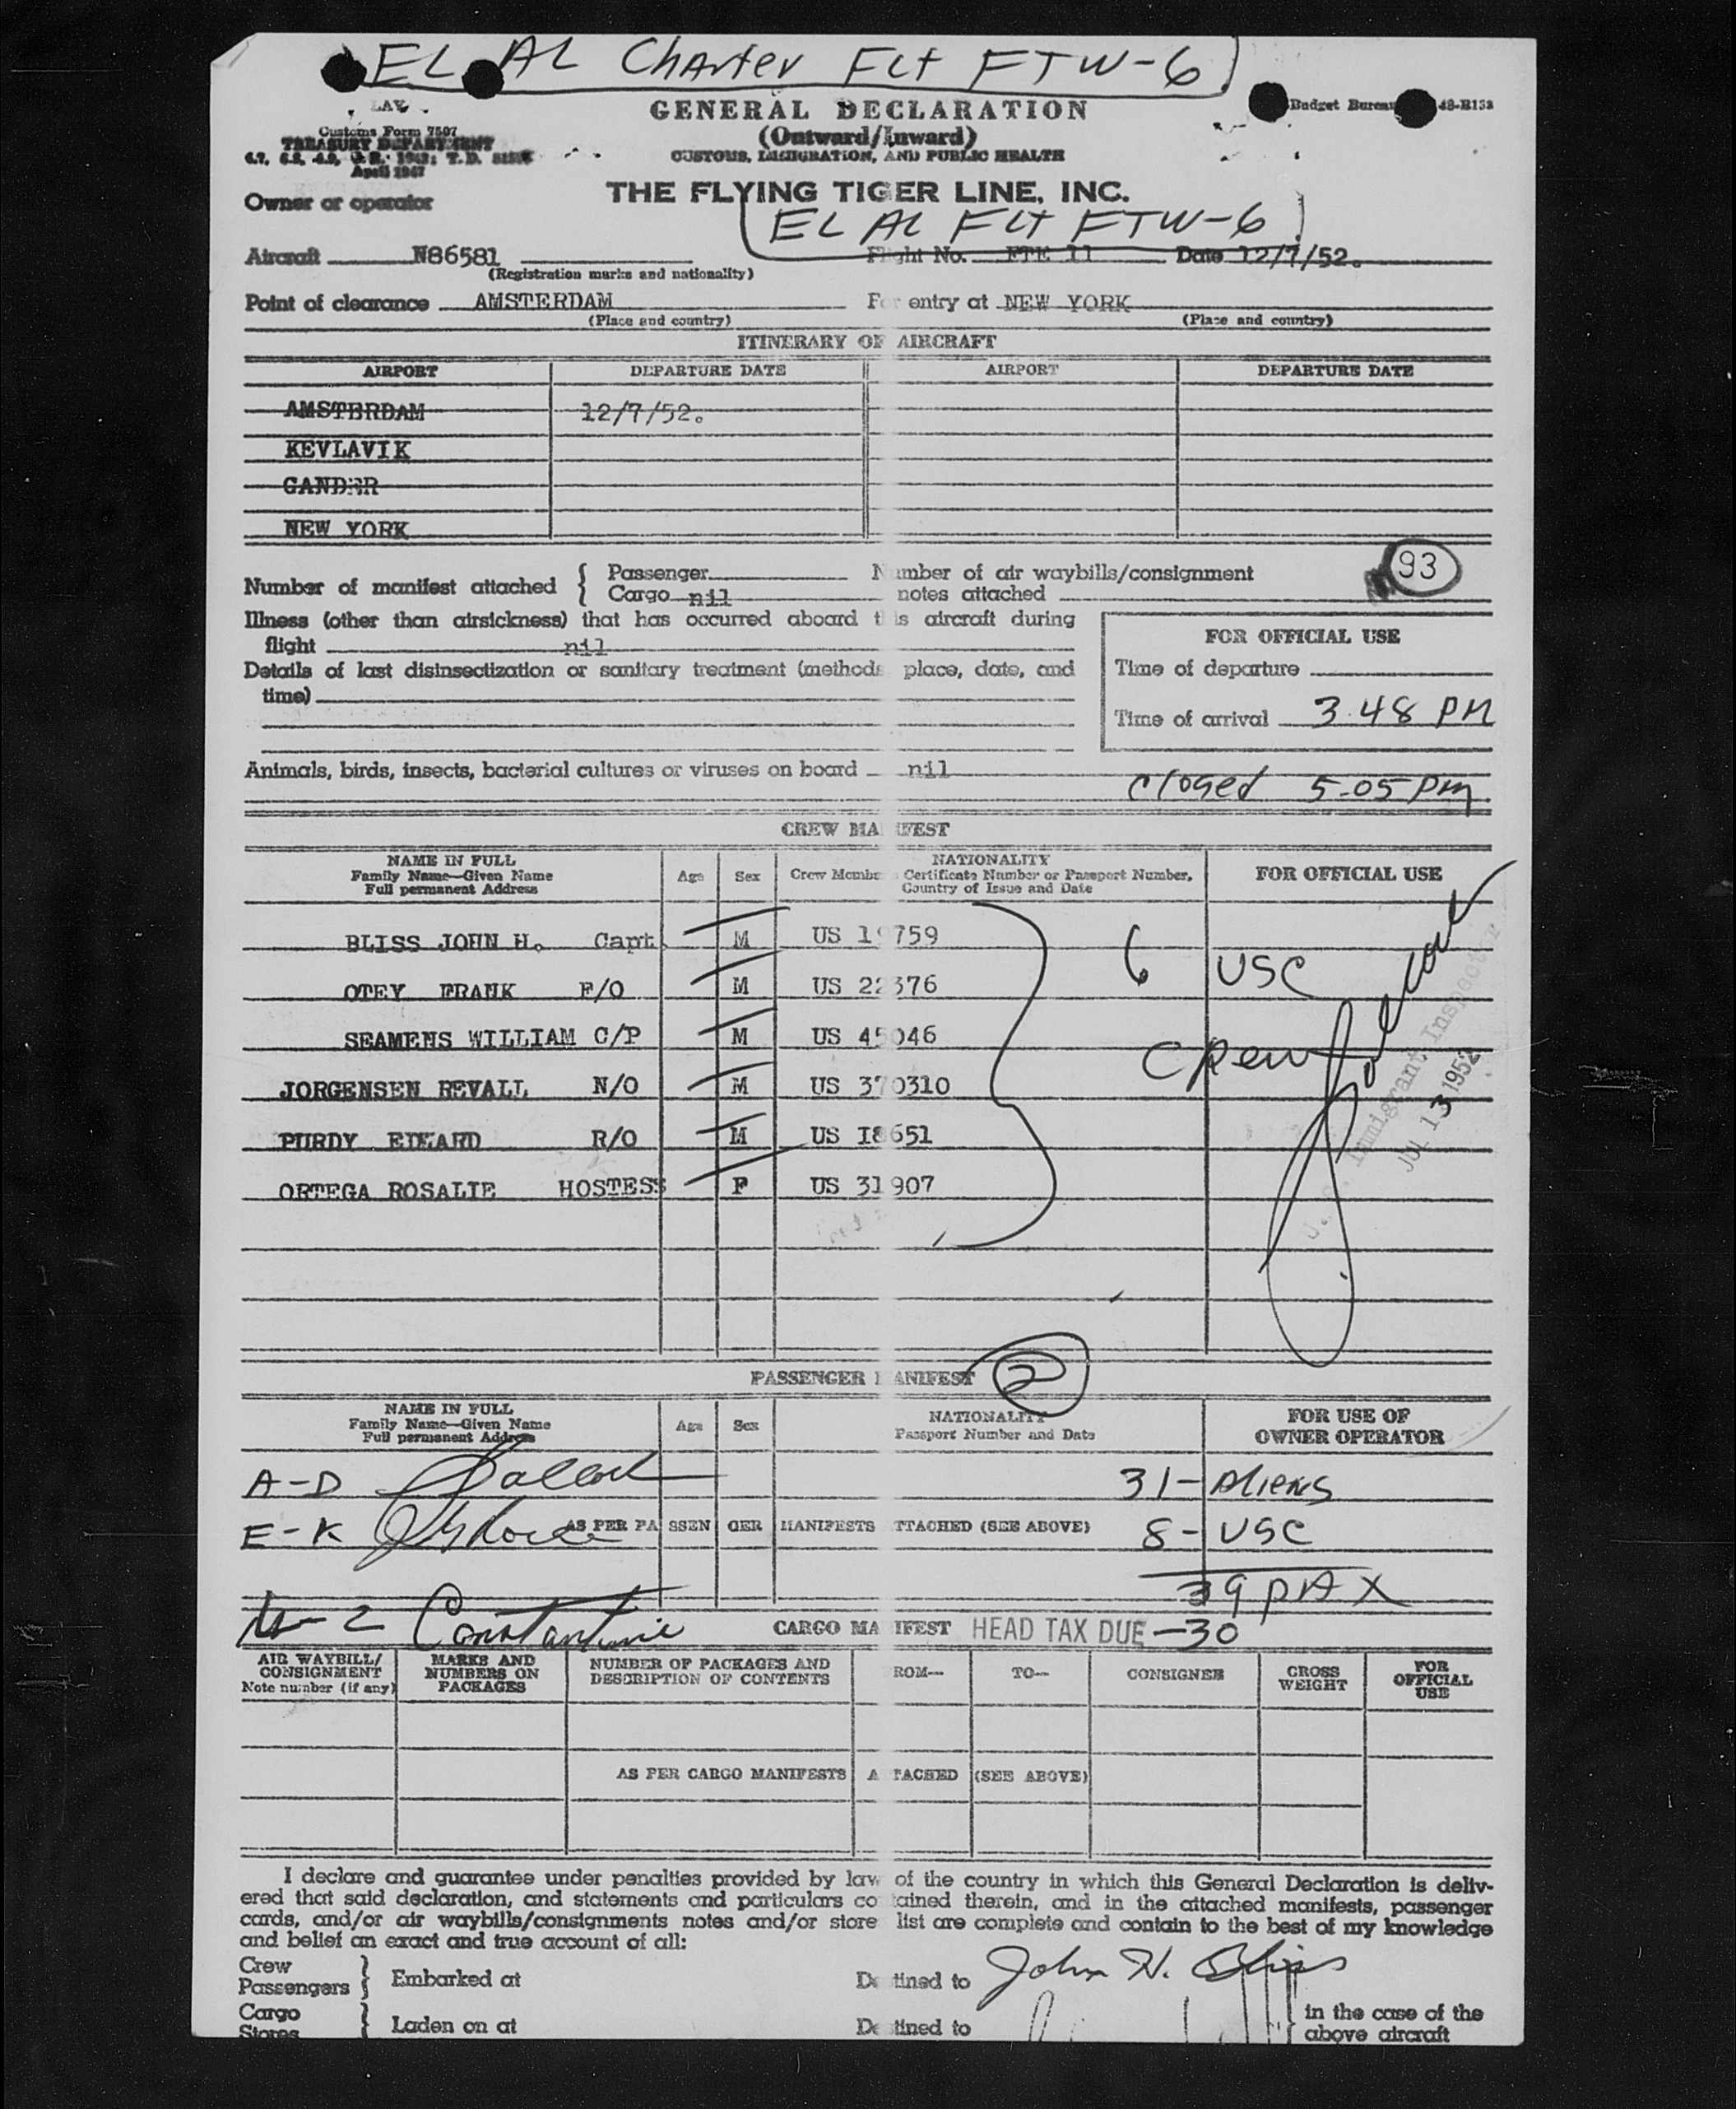 EL AL Charter Flt FTW-6
GENERAL DECLARATION
(Outward/Inward)
CUSTOMS, IMMIGRATION, AND PUBLIC HEALTH
Budget Bureau 48-R138
Customs Form 7507
TREASURY DEPARTMENT
April 1947
THE FLYING TIGER LINE, INC.
Owner or operator
EL AL FLT FTW-6
Aircraft N86581 Flight No. FTE 11 Date 12/7/52.
(Registration marks and nationality)
Point of clearance AMSTERDAM For entry at NEW YORK
(Place and country) (Place and country)
ITINERARY OF AIRCRAFT
AIRPORT DEPARTURE DATE AIRPORT DEPARTURE DATE
AMSTERDAM 12/7/52.
KEVLAVIK
GANDER
NEW YORK
93
Number of manifest attached { Passenger Number of air waybills/consignment
Cargo nil notes attached
Illness (other than airsickness) that has occurred aboard this aircraft during
flight nil
FOR OFFICIAL USE
Details of last disinsectization or sanitary treatment (methods place, date, and
time)
Time of departure
Time of arrival 3.48 PM
Animals, birds, insects, bacterial cultures or viruses on board nil
closed 5-05 pm
CREW MANIFEST
NAME IN FULL
Family Name—Given Name
Full permanent Address
Age Sex
NATIONALITY
Crew Members Certificate Number or Passport Number,
Country of Issue and Date
FOR OFFICIAL USE
BLISS JOHN H. Capt. M US 19759
OTEY FRANK F/O M US 22376
SEAMENS WILLIAM C/P M US 45046
JORGENSEN REVALL N/O M US 370310
PURDY EDWARD R/O M US I8651
ORTEGA ROSALIE HOSTESS F US 31907
6 USC
Crew
Immigrant Inspector
JUL 13 1952
PASSENGER MANIFEST 2
NAME IN FULL
Family Name—Given Name
Full permanent Address
Age Sex
NATIONALITY
Passport Number and Date
FOR USE OF
OWNER OPERATOR
A-D 31- Aliens
E-K AS PER PASSENGER MANIFESTS ATTACHED (SEE ABOVE) 8- USC
39 PAX
Constantine
CARGO MANIFEST HEAD TAX DUE -30
AIR WAYBILL/
CONSIGNMENT
Note number (if any)
MARKS AND
NUMBERS ON
PACKAGES
NUMBER OF PACKAGES AND
DESCRIPTION OF CONTENTS
FROM— TO— CONSIGNEE
GROSS
WEIGHT
FOR
OFFICIAL
USE
AS PER CARGO MANIFESTS ATTACHED (SEE ABOVE)
I declare and guarantee under penalties provided by law of the country in which this General Declaration is deliv-
ered that said declaration, and statements and particulars contained therein, and in the attached manifests, passenger
cards, and/or air waybills/consignments notes and/or store list are complete and contain to the best of my knowledge
and belief an exact and true account of all:
Crew
Passengers } Embarked at Destined to John H. Bliss
Cargo
Stores } Laden on at Destined to
in the case of the
above aircraft